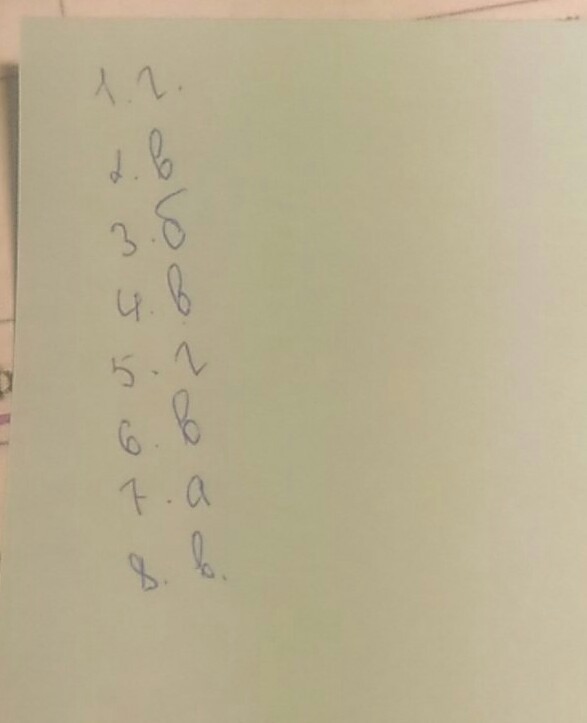 1. г.
2. в
3. б
4. в
5. г
6. в
7. а
8. в.